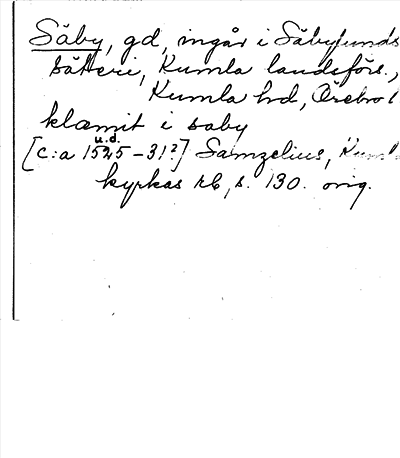 Säby, gd, ingår i Säbylunds
säteri, Kumla landsförs.,
Kumla hd, Örebro l
klæmit i saby
u.d.
[c:a 1525-31?] Samzelius, Kumla
kyrkas rb, s. 130. orig.